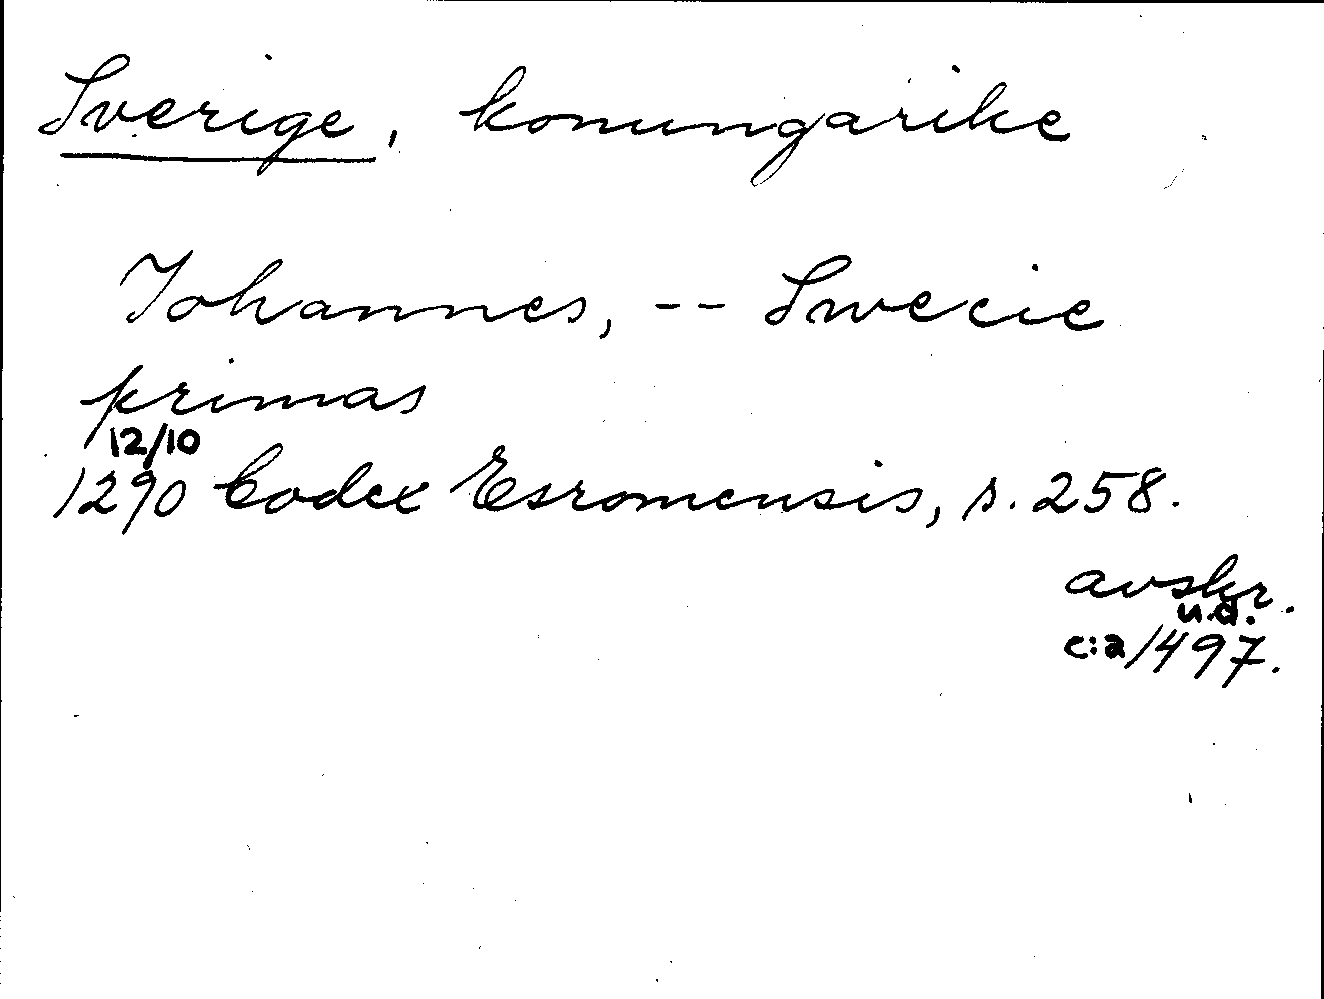 Sverige, konungarike
Johannes, -- Swecie
primas
12/10
1290 Codex Esromensis, s. 258.
avskr.
u.d.
c:a 1497.